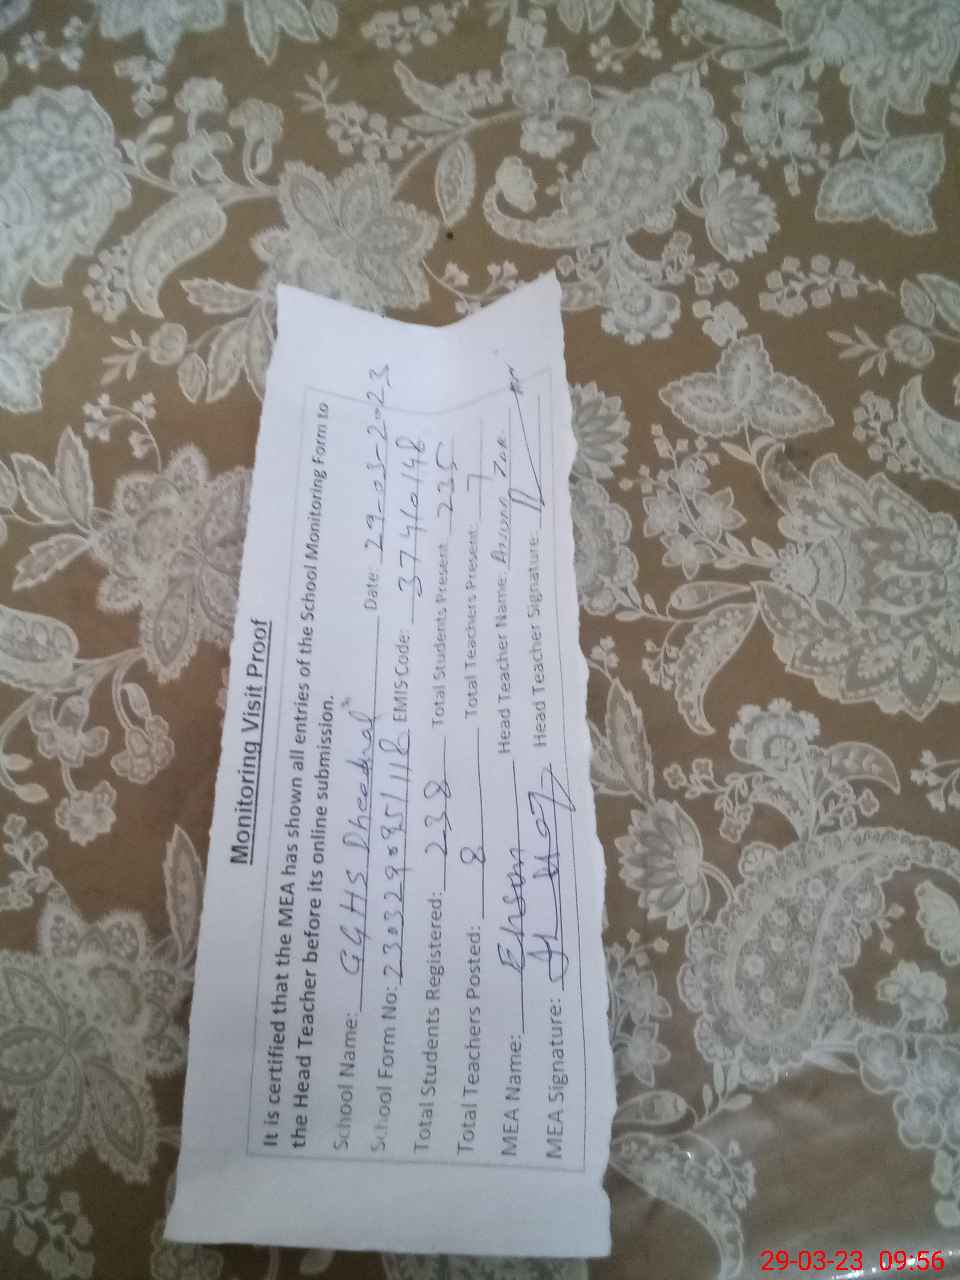 Monitoring Visit Proof
It is certified that the MEA has shown all entries of the School Monitoring Form to
the Head Teacher before its online submission.
School Name: GGHS Dheedwal Date: 29-03-2023
School Form No: EMIS Code: 37410148
Total Students Registered: 238 Total Students Present: 235
Total Teachers Posted: 8 Total Teachers Present: 7
MEA Name: Ehsan Head Teacher Name:
MEA Signature: Head Teacher Signature:
29-03-23 09:56